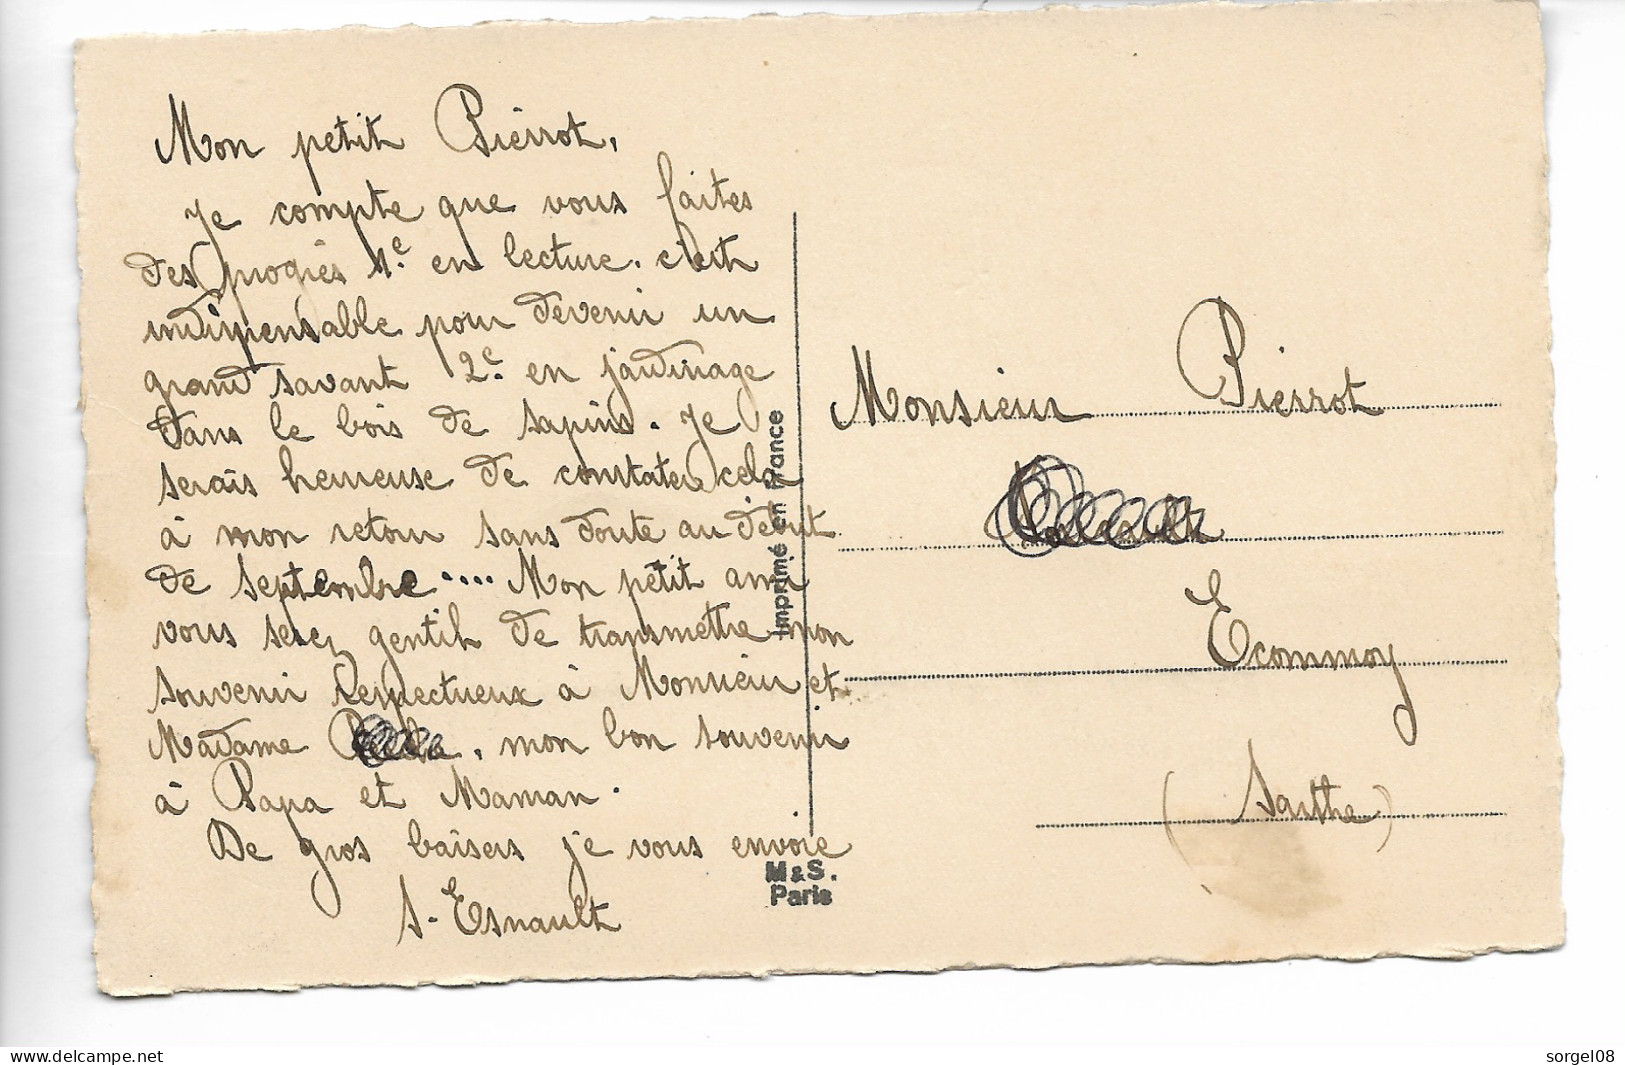 Mon petit Pierrot,
Je compte que vous faites
des progrès 1e. en lecture. c'est
indispensable pour devenir un
grand savant 2e. en jardinage
dans le bois de sapins. Je
serais heureuse de constater cela
à mon retour sans doute au début
de septembre .... Mon petit ami
vous serez gentil de transmettre mon
souvenir respectueux à Monsieur et
Madame , mon bon souvenir
à Papa et Maman.
De gros baisers je vous envoie
S. Esnault
Imprimé en France
M & S.
Paris
Monsieur Pierrot
Ecommoy
(Sarthe)
delcampe.net
sorgel08